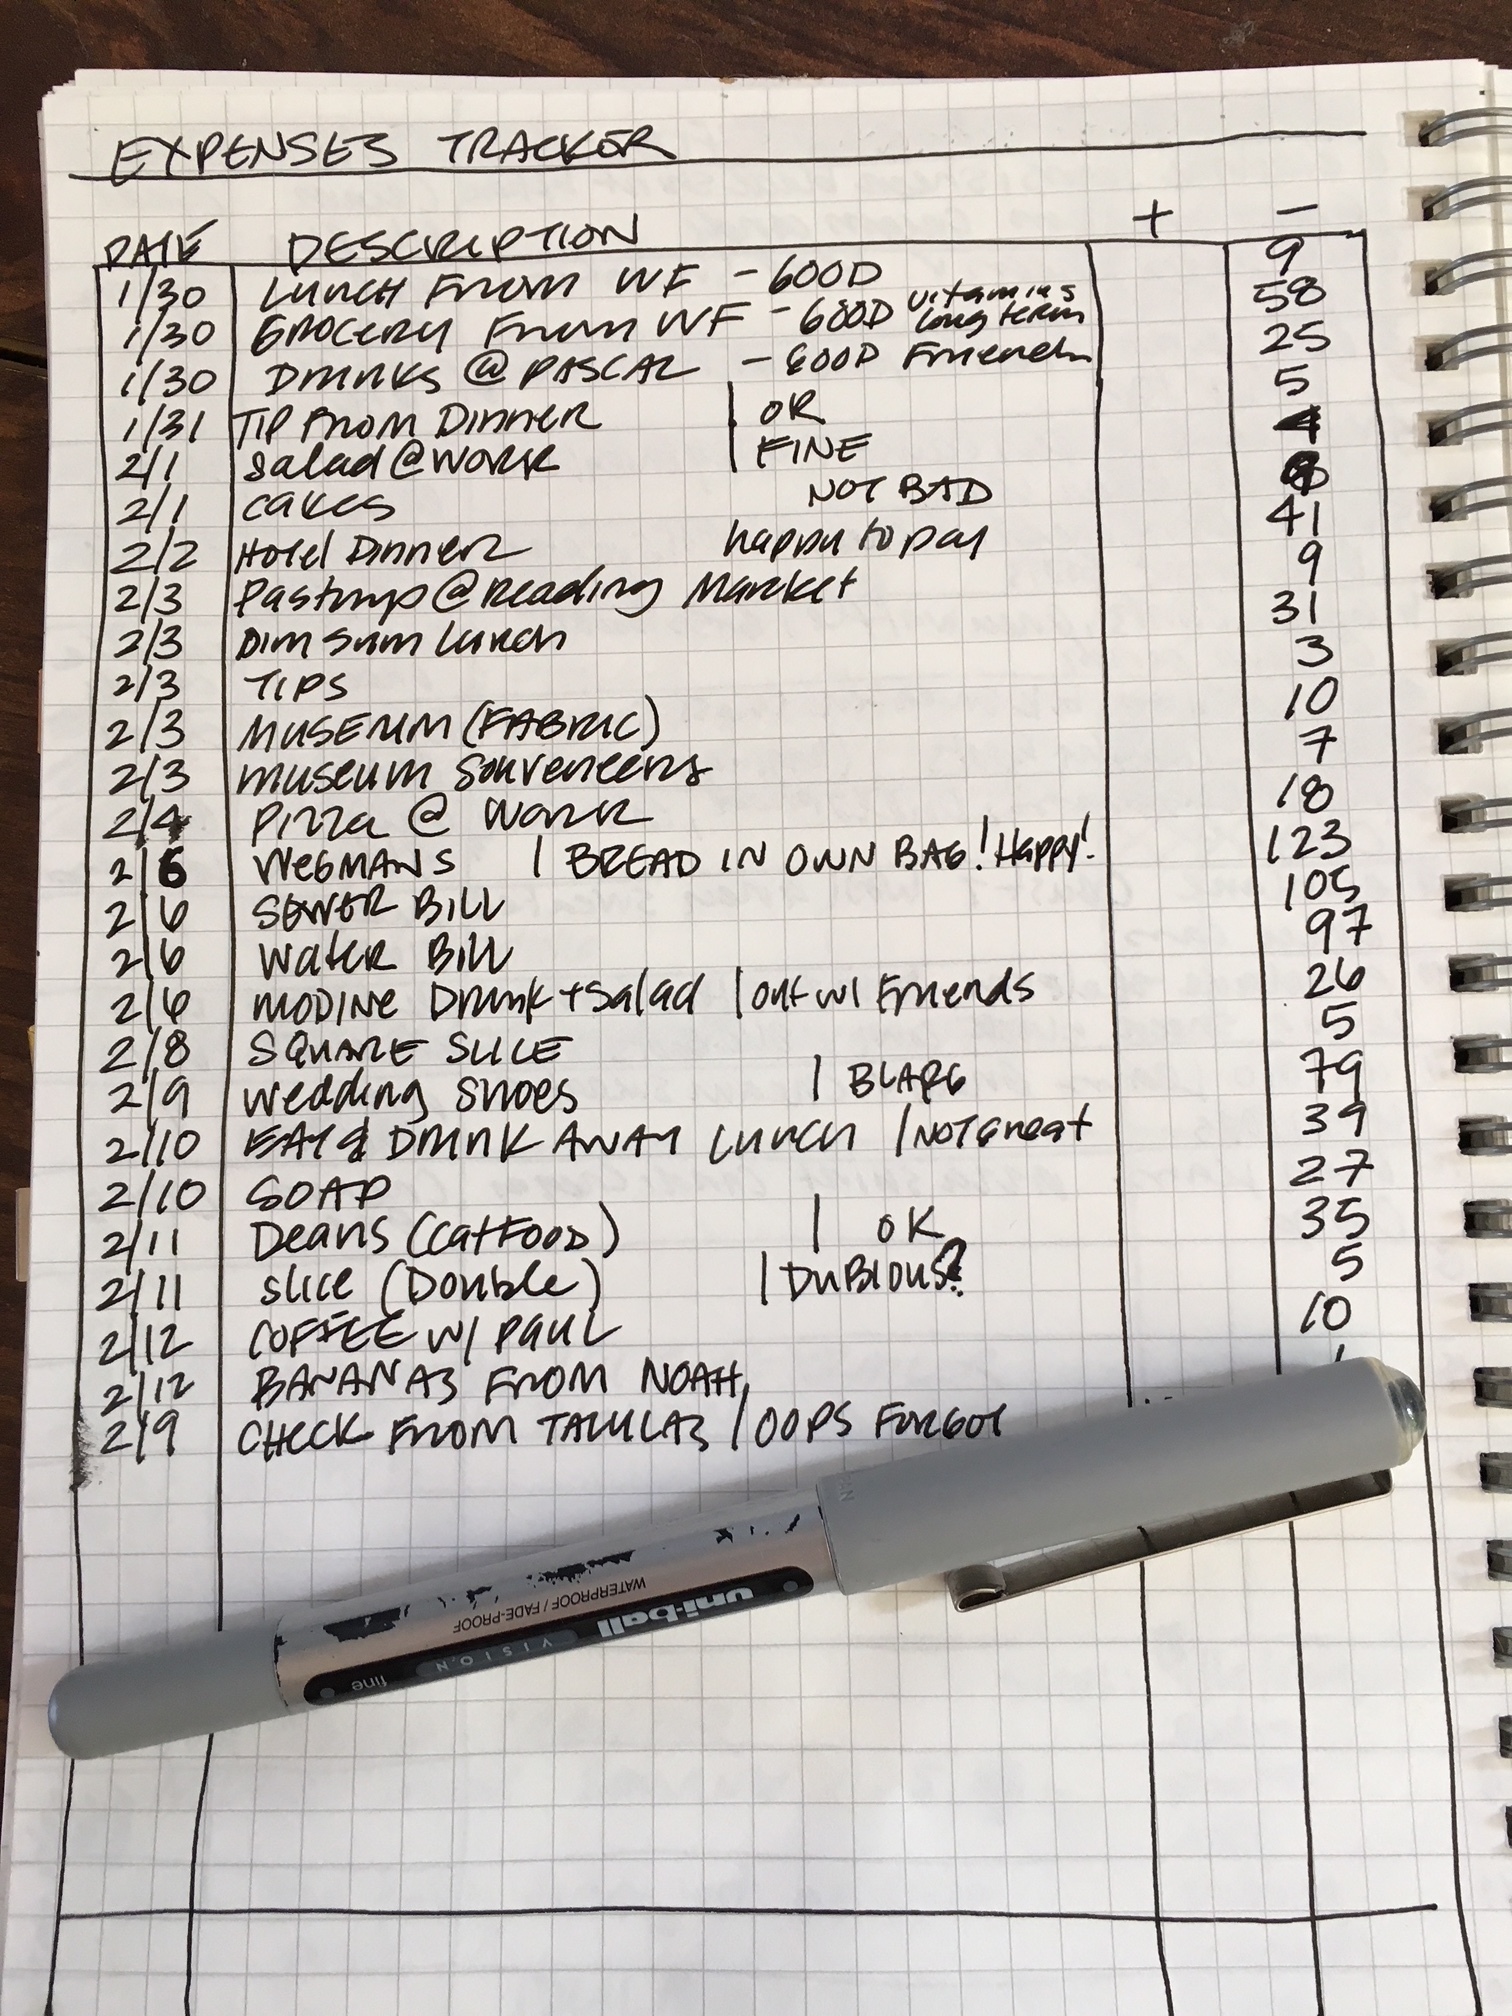 EXPENSES TRACKER
DATE DESCRIPTION + −
1/30 LUNCH FROM WF - GOOD 9
1/30 GROCERY FROM WF - GOOD vitamins long term 58
1/30 DRINKS @ PASCAL - GOOD Friends 25
1/31 TIP FROM Dinner | OK 5
2/1 Salad @ WORK | FINE 4
2/1 cakes NOT BAD
2/2 Hotel Dinner happy to pay 41
2/3 Pastrys @ Reading Market 9
2/3 Dim Sum Lunch 31
2/3 TIPS 3
2/3 MUSEUM (FABRIC) 10
2/3 museum Souveneers 7
2/4 Pizza @ Work 18
2/6 WEGMANS | BREAD IN OWN BAG! Happy! 123
2/6 SEWER BILL 105
2/6 Water Bill 97
2/6 MODINE Drink + Salad | out w/ Friends 26
2/8 SQUARE SLICE 5
2/9 Wedding Shoes | BLARG 79
2/10 EAT & DRINK AWAY LUNCH | NOT Great 39
2/10 SOAP 27
2/11 Deans (Cat Food) | OK 35
2/11 Slice (Double) | DUBIOUS? 5
2/12 COFFEE W/ PAUL 10
2/12 BANANAS FROM NOAH
2/9 CHECK FROM TALULAS / OOPS FORGOT
uni-ball
VISION
fine
WATERPROOF / FADE-PROOF